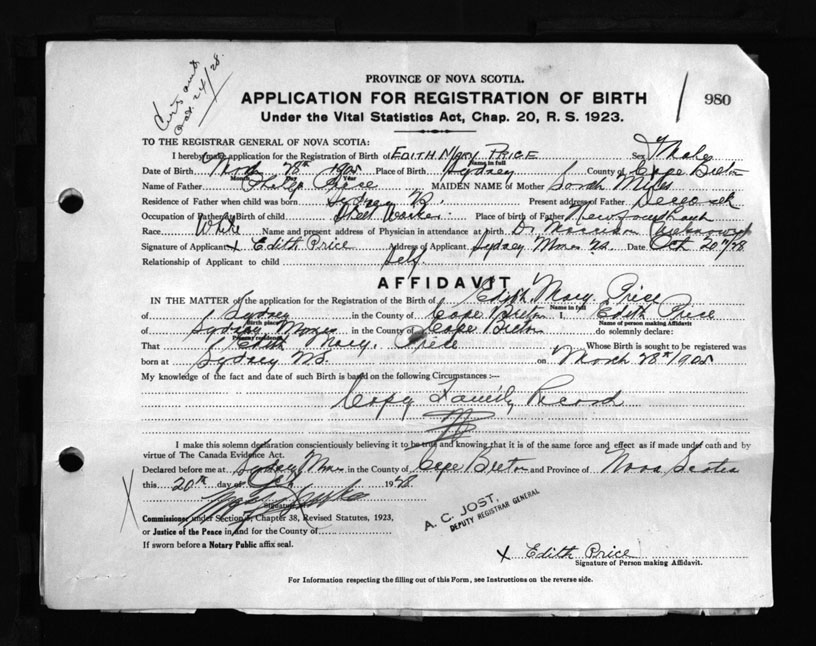 Oct. 24/28.
PROVINCE OF NOVA SCOTIA.
980
APPLICATION FOR REGISTRATION OF BIRTH
Under the Vital Statistics Act, Chap. 20, R. S. 1923.
TO THE REGISTRAR GENERAL OF NOVA SCOTIA:
I hereby make application for the Registration of Birth of EDITH MARY PRICE Sex
Name in full
Date of Birth March 28th 1905 Place of Birth Sydney County of Cape Breton
Month Day Year
Name of Father Price MAIDEN NAME of Mother Sarah
Residence of Father when child was born Sydney N.S. Present address of Father Deceased
Occupation of Father at Birth of child Steel Worker Place of birth of Father Newfoundland
Race White Name and present address of Physician in attendance at birth Dr. Morrison Unknown
Signature of Applicant x Edith Price Address of Applicant Sydney Mines NS. Date Oct 20th/28
Relationship of Applicant to child Self.
AFFIDAVIT
IN THE MATTER of the application for the Registration of the Birth of Edith Mary Price
Name in full
of Sydney in the County of Cape Breton I, Edith Price
Birth place Name of person making Affidavit
of Sydney Mines in the County of Cape Breton do solemnly declare:
Present residence
That Edith Mary Price Whose Birth is sought to be registered was
born at Sydney NS. on March 28th/1905
My knowledge of the fact and date of such Birth is based on the following Circumstances :—
Copy Family Record
I make this solemn declaration conscientiously believing it to be true and knowing that it is of the same force and effect as if made under oath and by
virtue of The Canada Evidence Act.
Declared before me at Sydney Mines in the County of Cape Breton and Province of Nova Scotia
this 20th day of Oct 1928.
Signature
Commissioner under Section 5, Chapter 38, Revised Statutes, 1923,
or Justice of the Peace in and for the County of
If sworn before a Notary Public affix seal.
A. C. JOST,
DEPUTY REGISTRAR GENERAL
x Edith Price
Signature of Person making Affidavit.
For Information respecting the filling out of this Form, see Instructions on the reverse side.